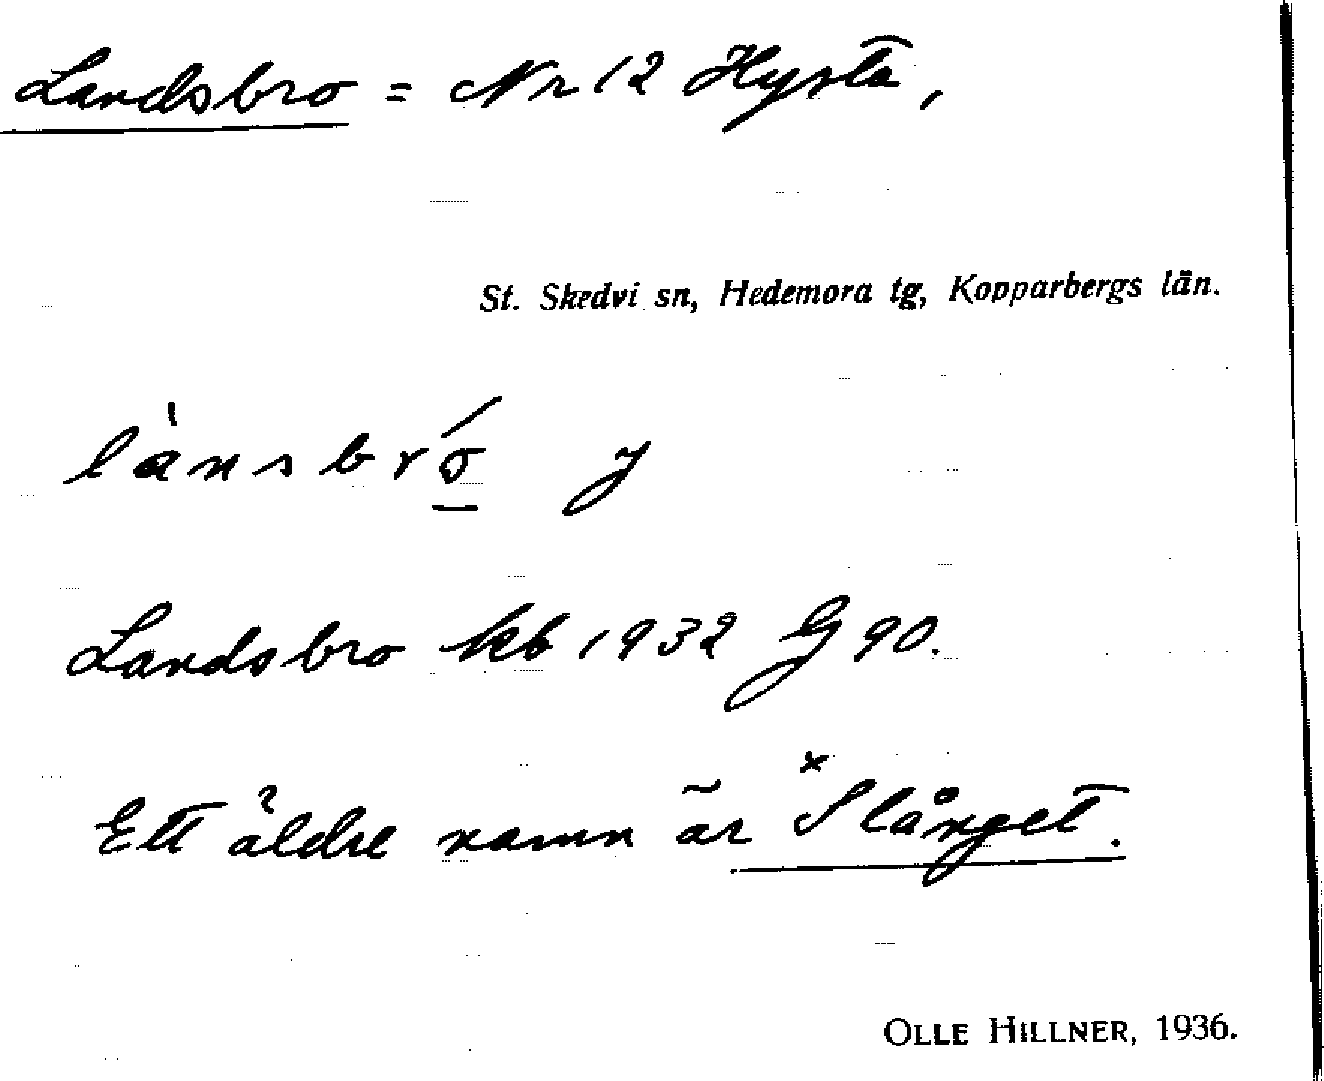 Landsbro = Nr 12 Hysta,
St. Skedvi sn, Hedemora tg, Kopparbergs län.
lànsbró y
Landsbro kb 1932 G 90.
Ett äldre namn är ˣSlånget.
OLLE HILLNER, 1936.